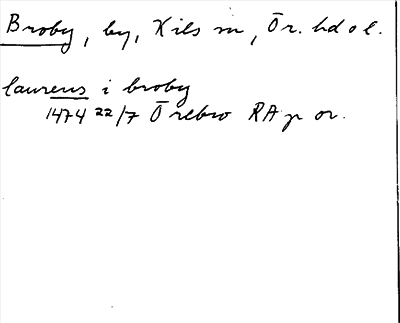 Broby, by, Kils sn, Ör. hd o l.
laurens i broby
1474 22/7 Örebro RAp or.